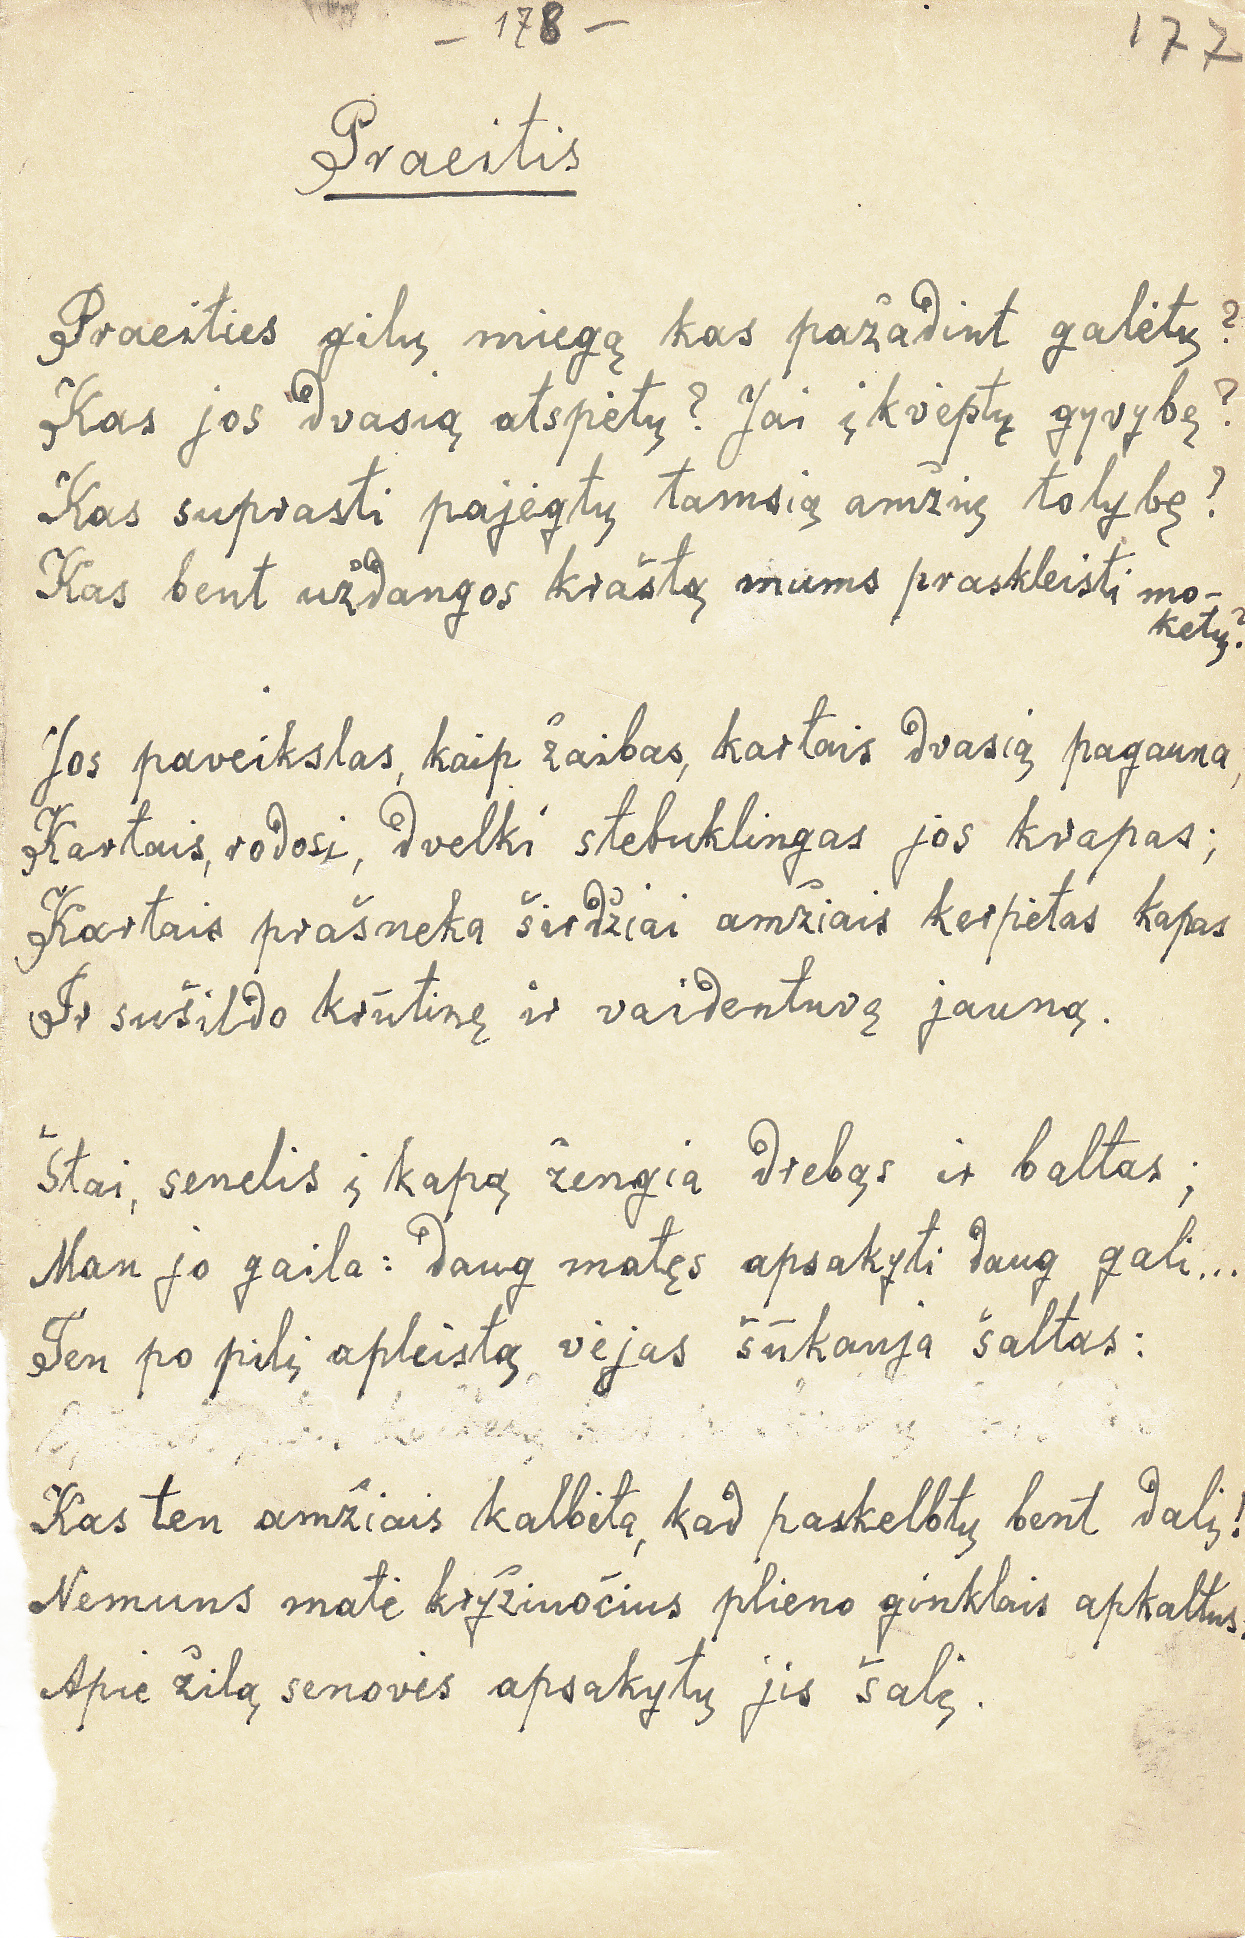 – 178 –
177
Praeitis
Praeities gilų miegą kas pažadint galėtų?
Kas jos dvasią atspėtų? Jai įkvėptų gyvybę?
Kas suprasti pajėgtų tamsią amžių tolybę?
Kas bent uždangos kraštą mums praskleisti mo-
kėtų?
Jos paveikslas, kaip žaibas, kartais dvasią pagauna,
Kartais, rodosi, dvelki stebuklingas jos kvapas;
Kartais prašneka širdžiai amžiais kerpėtas kapas
Ir sušildo krūtinę ir vaidentuvę jauną.
Štai, senelis į kapą žengia drebąs ir baltas;
Man jo gaila: daug matęs apsakyti daug gali...
Ten po pilį apleistą vėjas šūkauja šaltas:
Kas ten amžiais kalbėta, kad paskelbtų bent dalį!
Nemuns matė kryžiuočius plieno ginklais apkaltus:
Apie žilą senovės apsakytų jis šalę.